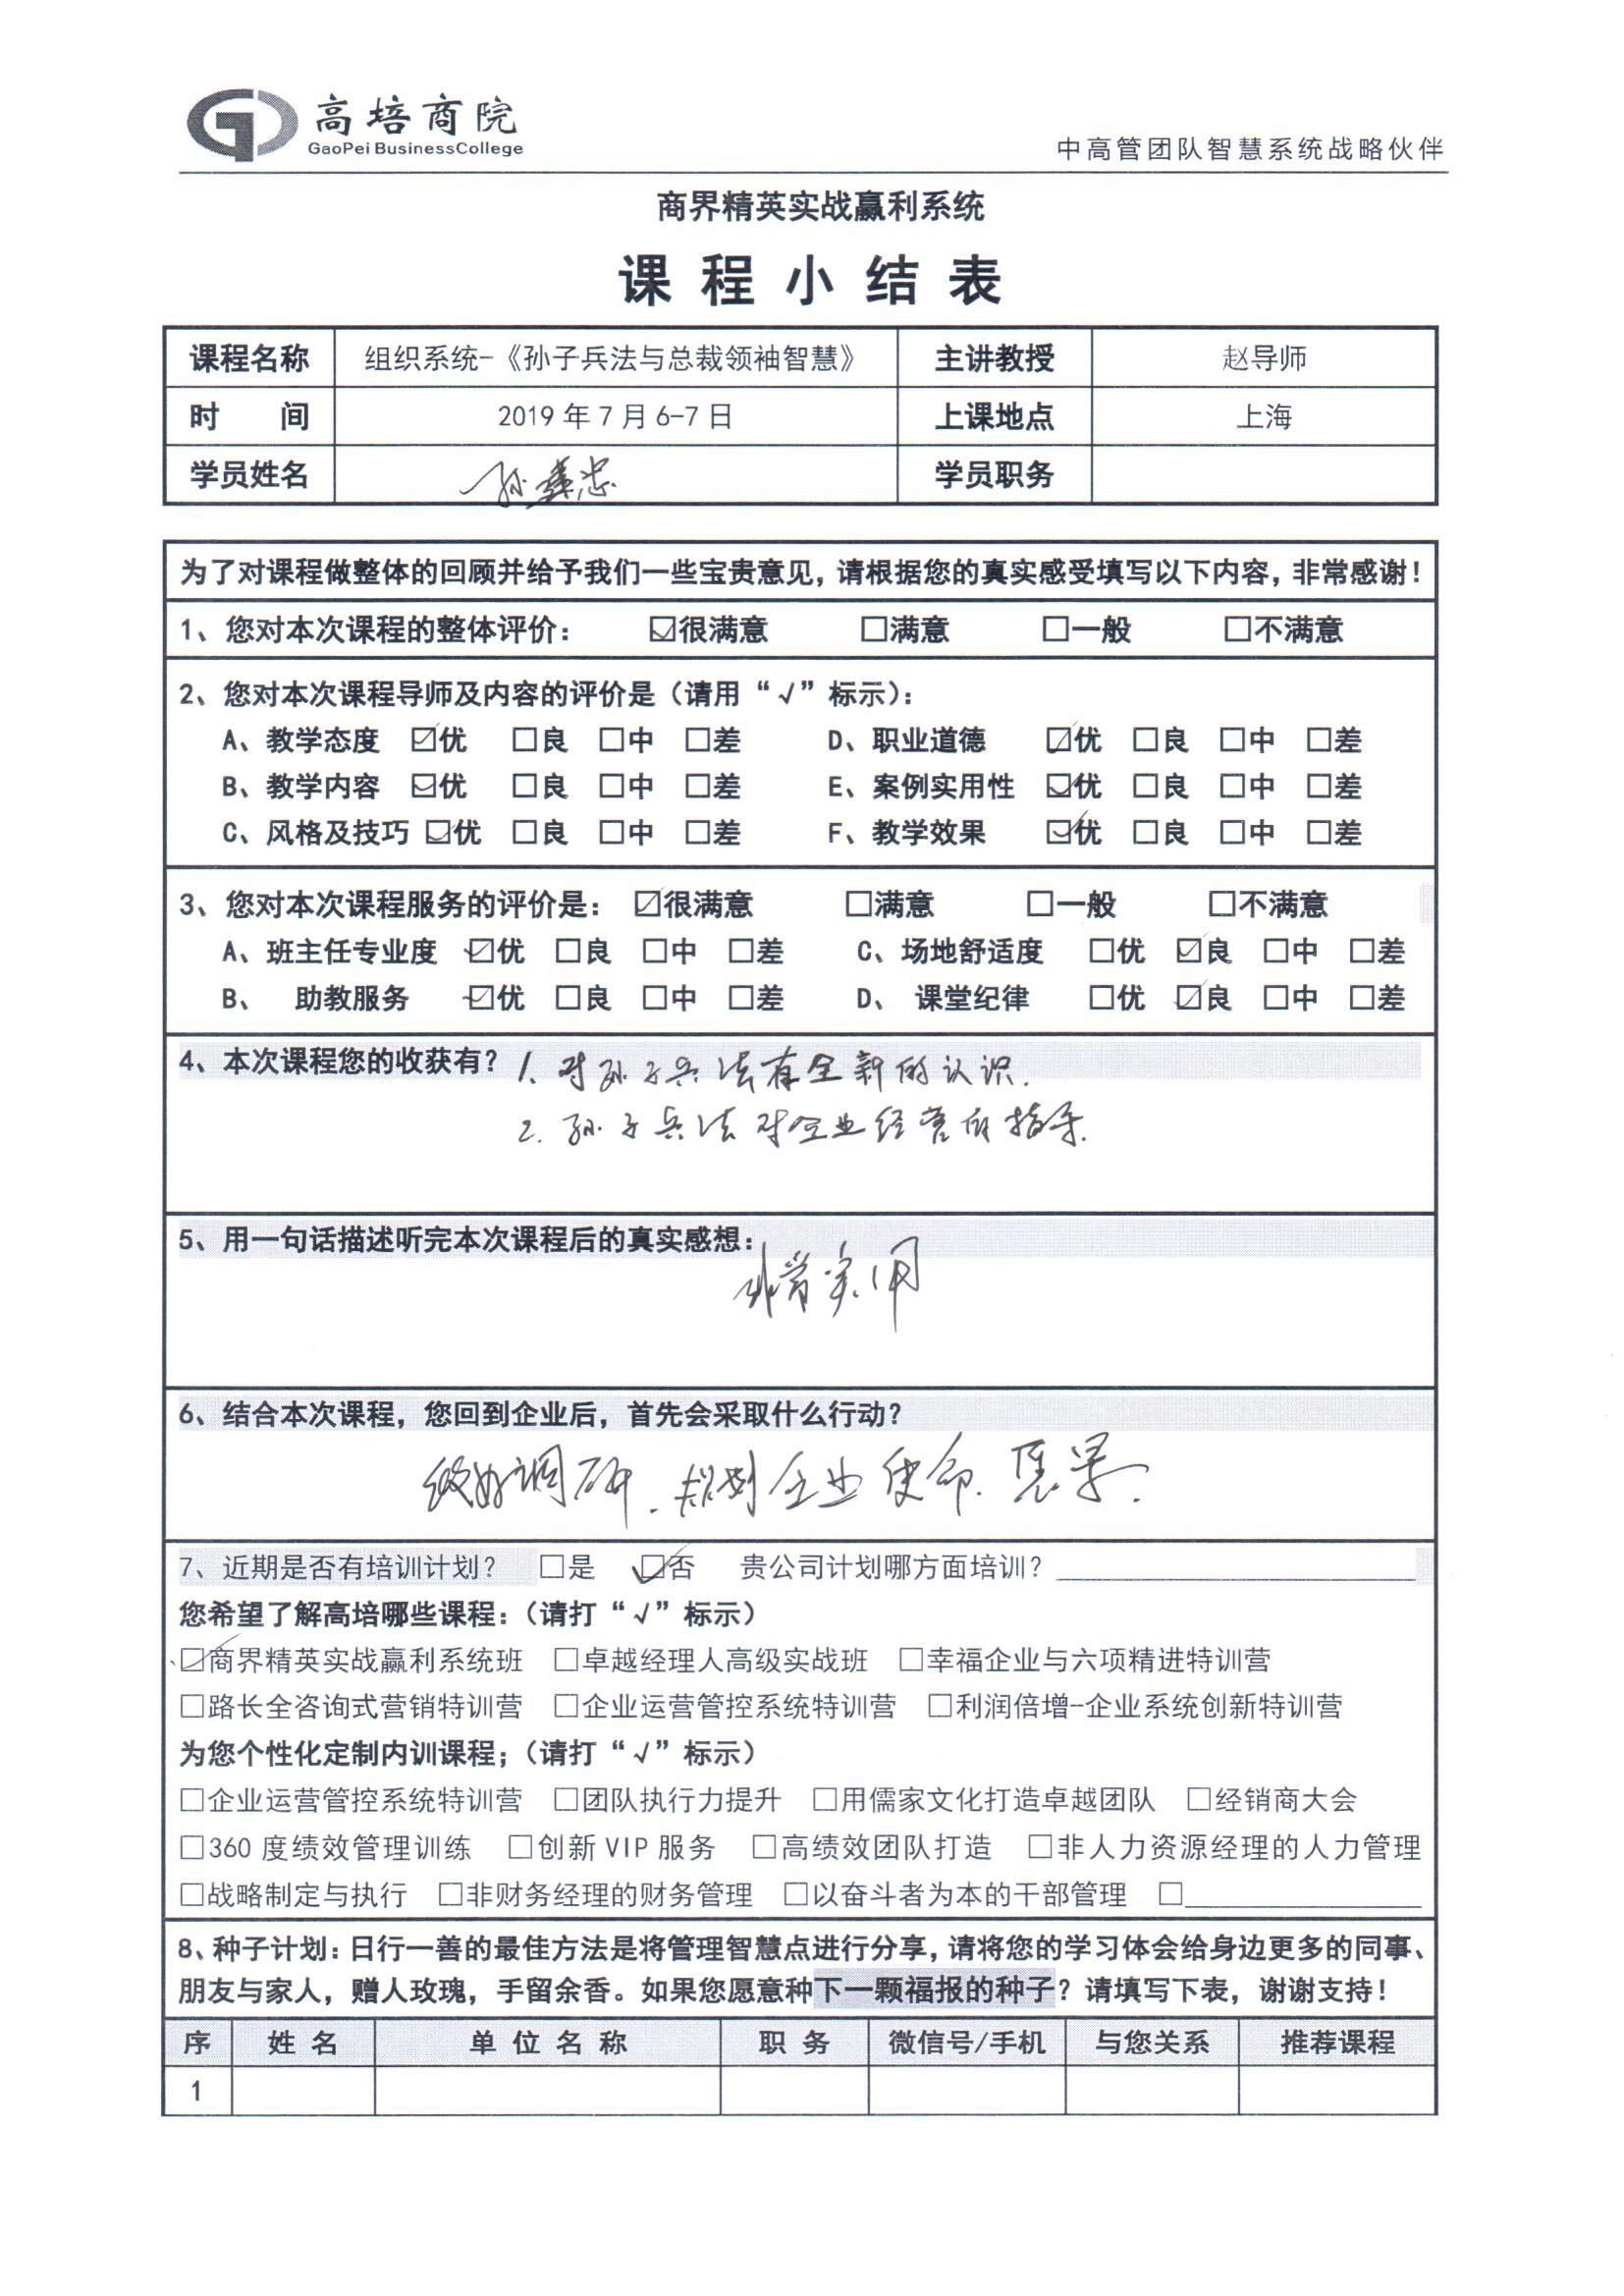 高培商院
GaoPei BusinessCollege
中高管团队智慧系统战略伙伴
商界精英实战赢利系统
课程小结表
课程名称 组织系统-《孙子兵法与总裁领袖智慧》 主讲教授 赵导师
时 间 2019年7月6-7日 上课地点 上海
学员姓名 孙 忠 学员职务
为了对课程做整体的回顾并给予我们一些宝贵意见，请根据您的真实感受填写以下内容，非常感谢！
1、您对本次课程的整体评价： ☑很满意 □满意 □一般 □不满意
2、您对本次课程导师及内容的评价是（请用“√”标示）：
A、教学态度 ☑优 □良 □中 □差 D、职业道德 ☑优 □良 □中 □差
B、教学内容 ☑优 □良 □中 □差 E、案例实用性 ☑优 □良 □中 □差
C、风格及技巧 ☑优 □良 □中 □差 F、教学效果 ☑优 □良 □中 □差
3、您对本次课程服务的评价是： ☑很满意 □满意 □一般 □不满意
A、班主任专业度 ☑优 □良 □中 □差 C、场地舒适度 □优 ☑良 □中 □差
B、 助教服务 ☑优 □良 □中 □差 D、 课堂纪律 □优 ☑良 □中 □差
4、本次课程您的收获有？ 1. 对孙子兵法有全新的认识.
2. 孙子兵法对企业经营的指导.
5、用一句话描述听完本次课程后的真实感想：
非常实用
6、结合本次课程，您回到企业后，首先会采取什么行动？
做好调研. 规划企业使命. 愿景.
7、近期是否有培训计划？ □是 ☑否 贵公司计划哪方面培训？
您希望了解高培哪些课程：（请打“√”标示）
☑商界精英实战赢利系统班 □卓越经理人高级实战班 □幸福企业与六项精进特训营
□路长全咨询式营销特训营 □企业运营管控系统特训营 □利润倍增-企业系统创新特训营
为您个性化定制内训课程；（请打“√”标示）
□企业运营管控系统特训营 □团队执行力提升 □用儒家文化打造卓越团队 □经销商大会
□360度绩效管理训练 □创新VIP服务 □高绩效团队打造 □非人力资源经理的人力管理
□战略制定与执行 □非财务经理的财务管理 □以奋斗者为本的干部管理 □
8、种子计划：日行一善的最佳方法是将管理智慧点进行分享，请将您的学习体会给身边更多的同事、
朋友与家人，赠人玫瑰，手留余香。如果您愿意种下一颗福报的种子？请填写下表，谢谢支持！
序 姓名 单位名称 职务 微信号/手机 与您关系 推荐课程
1